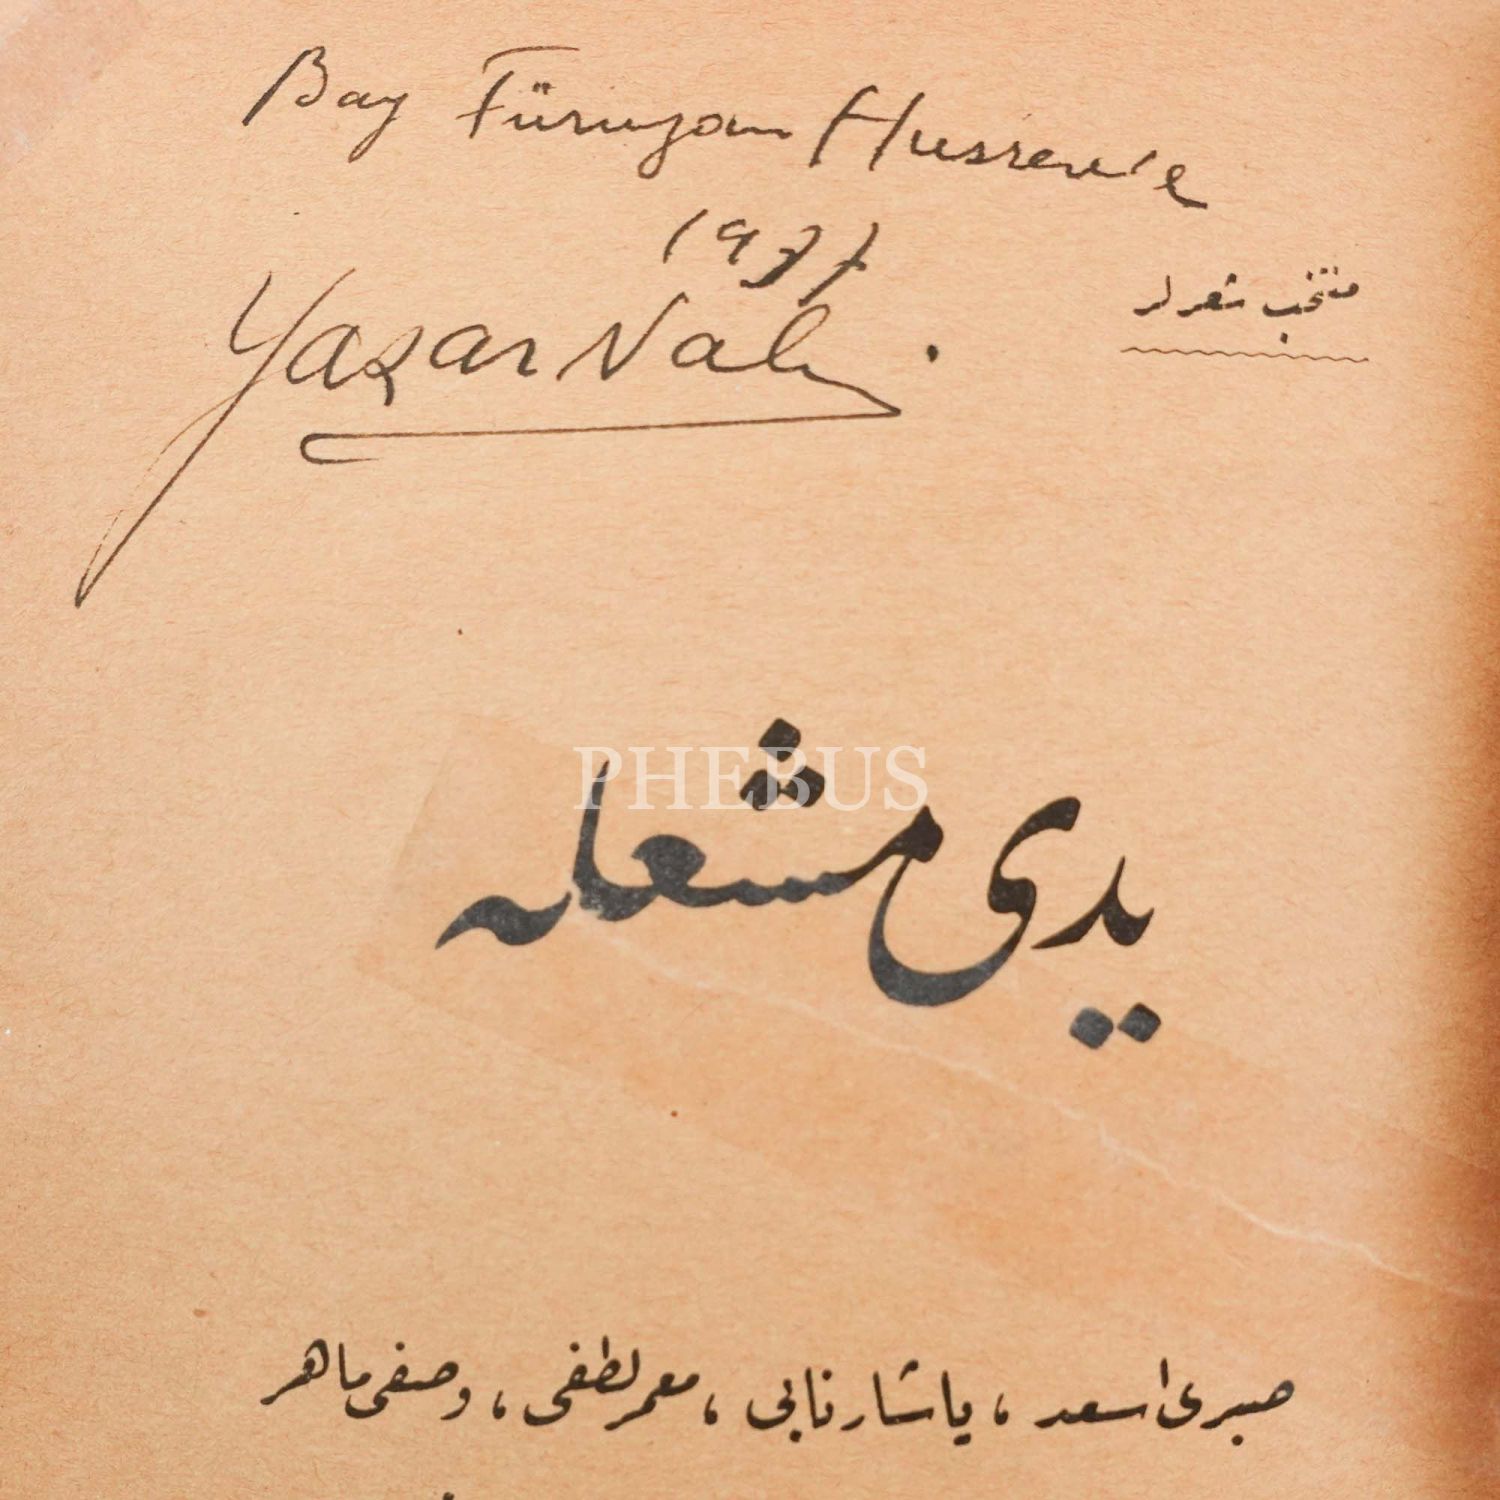 Bay Füruzan Husrev'e
1977
Yaşar Nabi.
منتخب شعرلر
PHEBUS
يدى مشعله
صبرى اسعد ، ياشار نابى ، معمر لطفى ، وصفى ماهر